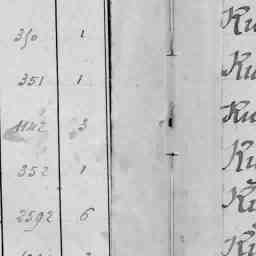 350 1 Ku
351 1 Ku
1142 3 Ku
352 1 Ku
2592 6 Ku
Ku